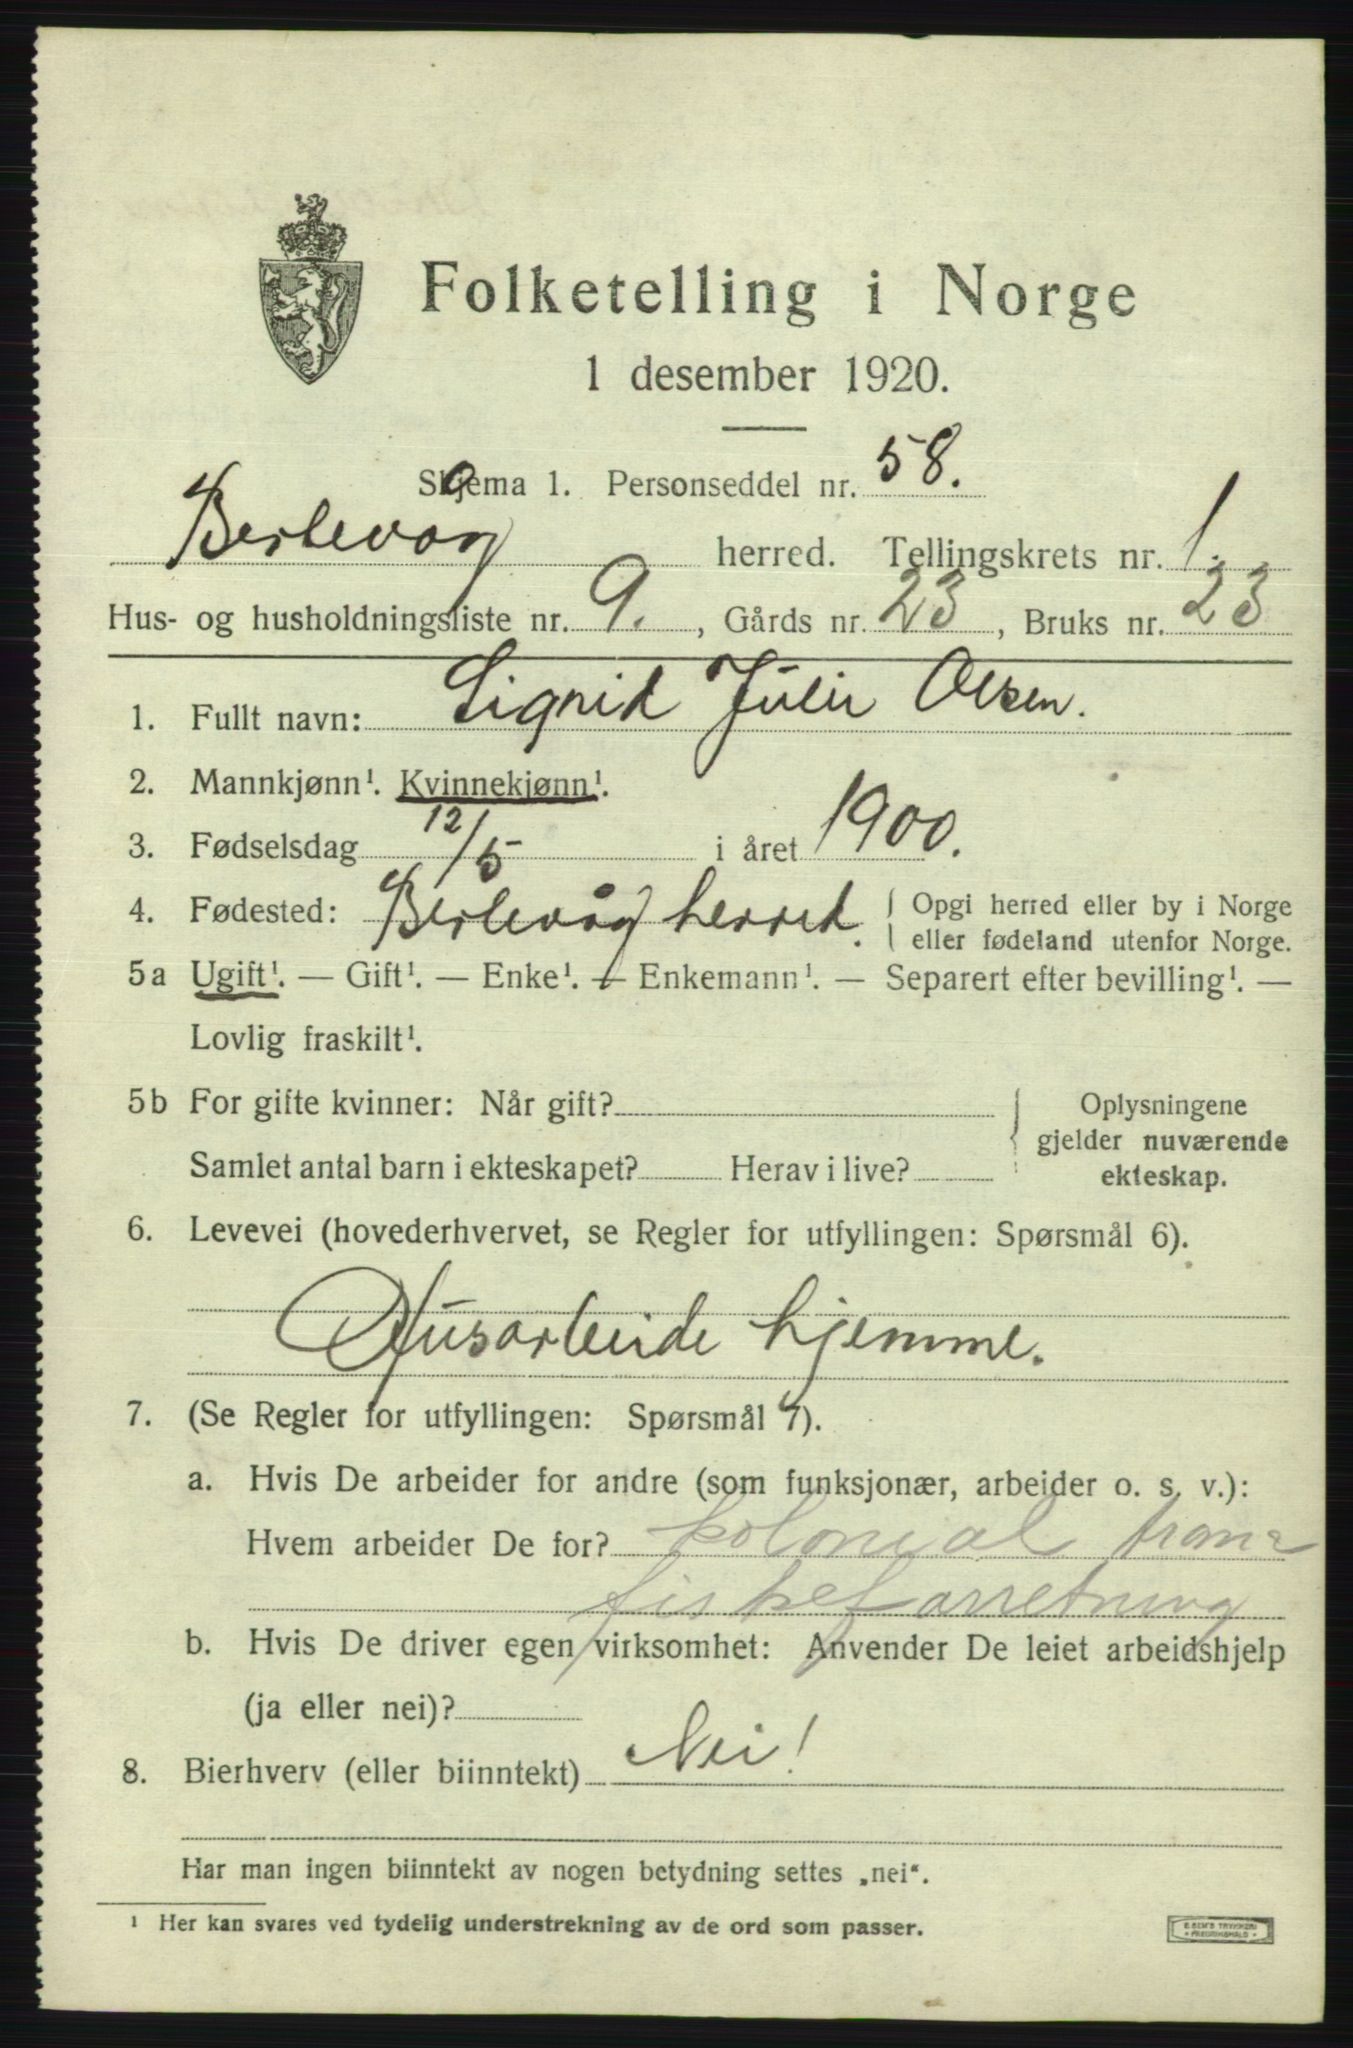 Folketelling i Norge
1 desember 1920.
Skjema 1. Personseddel nr. 58.
Berlevåg herred. Tellingskrets nr. 1.
Hus- og husholdningsliste nr. 9., Gårds nr. 23, Bruks nr. 23
1. Fullt navn: Sigrid Julie Olsen.
2. Mannkjønn¹. Kvinnekjønn¹.
3. Fødselsdag 12/5 i året 1900.
4. Fødested: Berlevåg herred. Opgi herred eller by i Norge
eller fødeland utenfor Norge.
5a Ugift¹. — Gift¹. — Enke¹. — Enkemann¹. — Separert efter bevilling¹. —
Lovlig fraskilt¹.
5b For gifte kvinner: Når gift? Oplysningene
gjelder nuværende
Samlet antal barn i ekteskapet? Herav i live? ekteskap.
6. Levevei (hovederhvervet, se Regler for utfyllingen: Spørsmål 6).
Husarbeide hjemme.
7. (Se Regler for utfyllingen: Spørsmål 7).
a. Hvis De arbeider for andre (som funksjonær, arbeider o. s. v.):
Hvem arbeider De for? kolonial
b. Hvis De driver egen virksomhet: Anvender De leiet arbeidshjelp
(ja eller nei)?
8. Bierhverv (eller biinntekt) Nei!
Har man ingen biinntekt av nogen betydning settes „nei“.
¹ Her kan svares ved tydelig understrekning av de ord som passer.
E. SEM'S TRYKKERI
• FREDRIKSHALD •